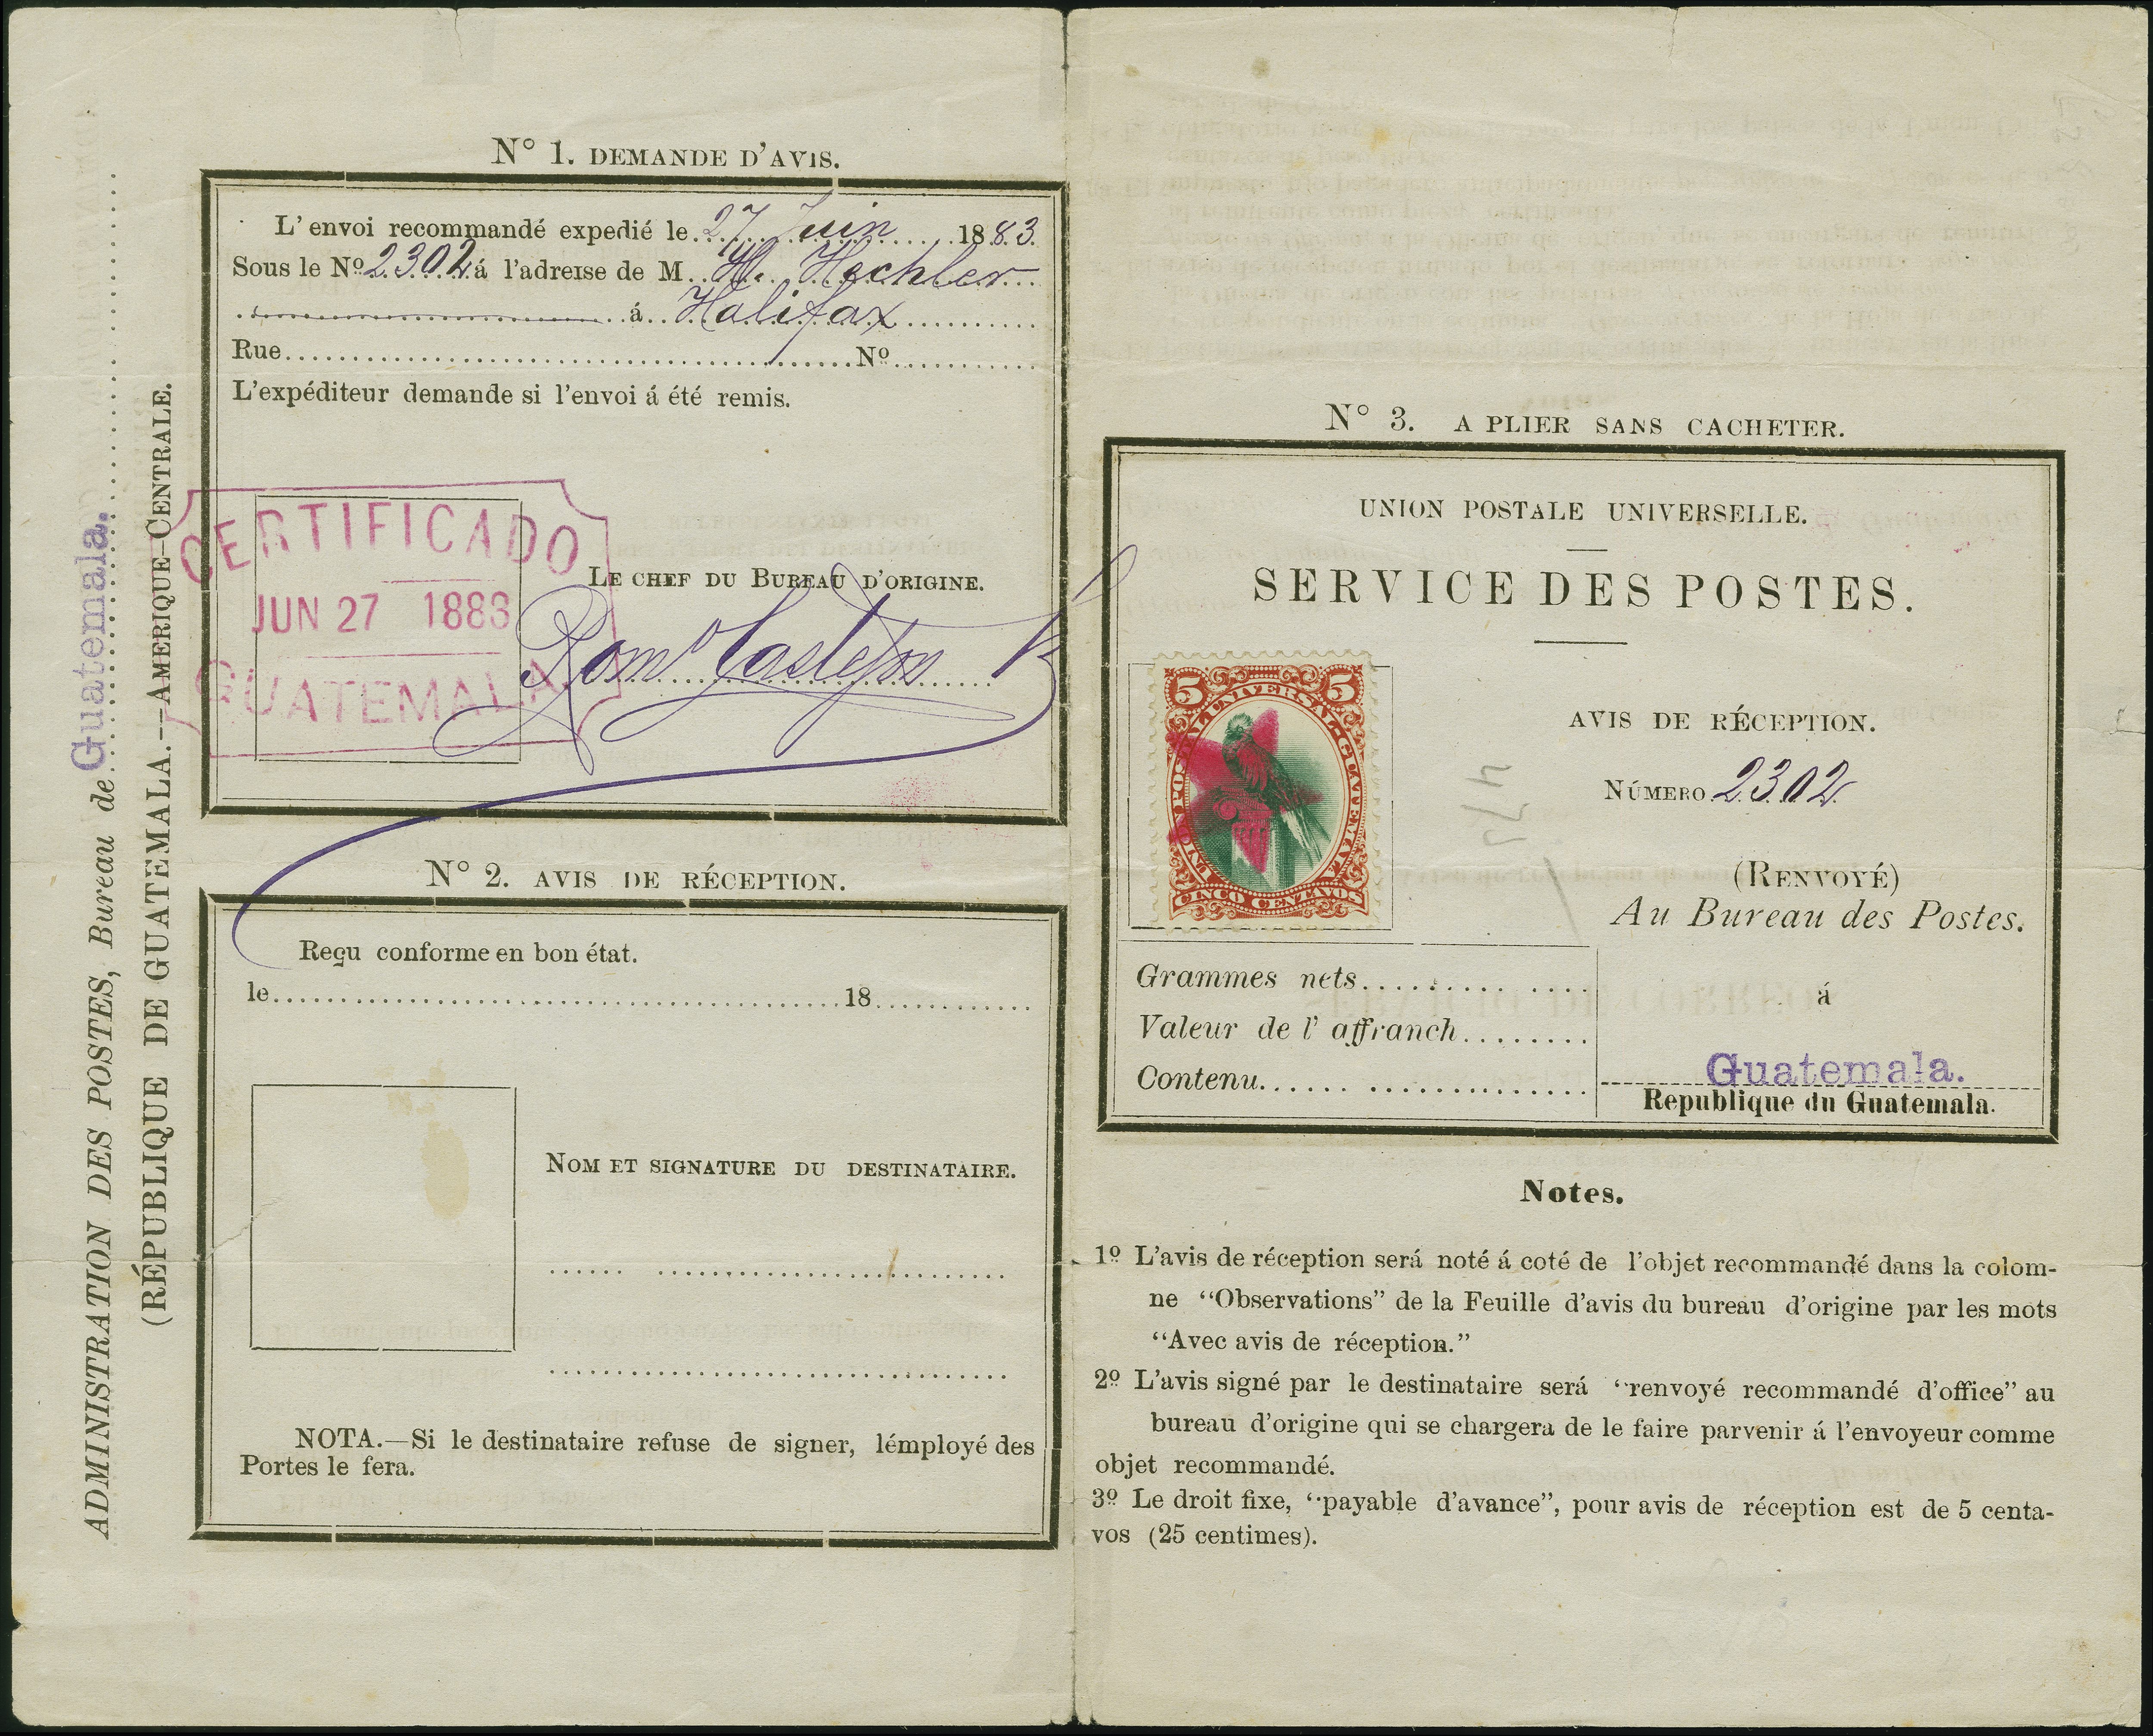 ADMINISTRATION DES POSTES, Bureau de Guatemala.
(RÉPUBLIQUE DE GUATEMALA.—AMERIQUE-CENTRALE.
Nº 1. DEMANDE D'AVIS.
L' envoi recommandé expedié le 27 Juin 1883.
Sous le Nº 2302 á l'adreise de M. H. Hechler
á Halifax
Rue Nº
L'expéditeur demande si l'envoi á été remis.
CERTIFICADO
JUN 27 1883
GUATEMALA
LE CHEF DU BUREAU D'ORIGINE.
Nº 2. AVIS DE RÉCEPTION.
Reçu conforme en bon état.
le 18
NOM ET SIGNATURE DU DESTINATAIRE.
NOTA.—Si le destinataire refuse de signer, lémployé des
Portes le fera.
Nº 3. A PLIER SANS CACHETER.
UNION POSTALE UNIVERSELLE.
SERVICE DES POSTES.
5 5
UNION POSTAL UNIVERSAL·GUATEMALA
CINCO CENTAVOS
AVIS DE RÉCEPTION.
NÚMERO 2302
(RENVOYÉ)
Au Bureau des Postes.
á
Guatemala.
Republique du Guatemala.
Grammes nets
Valeur de l' affranch
Contenu
Notes.
1º L'avis de réception será noté á coté de l'objet recommandé dans la colom-
ne “Observations” de la Feuille d'avis du bureau d'origine par les mots
“Avec avis de réception.”
2º L'avis signé par le destinataire será “renvoyé recommandé d'office” au
bureau d'origine qui se chargera de le faire parvenir á l'envoyeur comme
objet recommandé.
3º Le droit fixe, “payable d'avance”, pour avis de réception est de 5 centa-
vos (25 centimes).